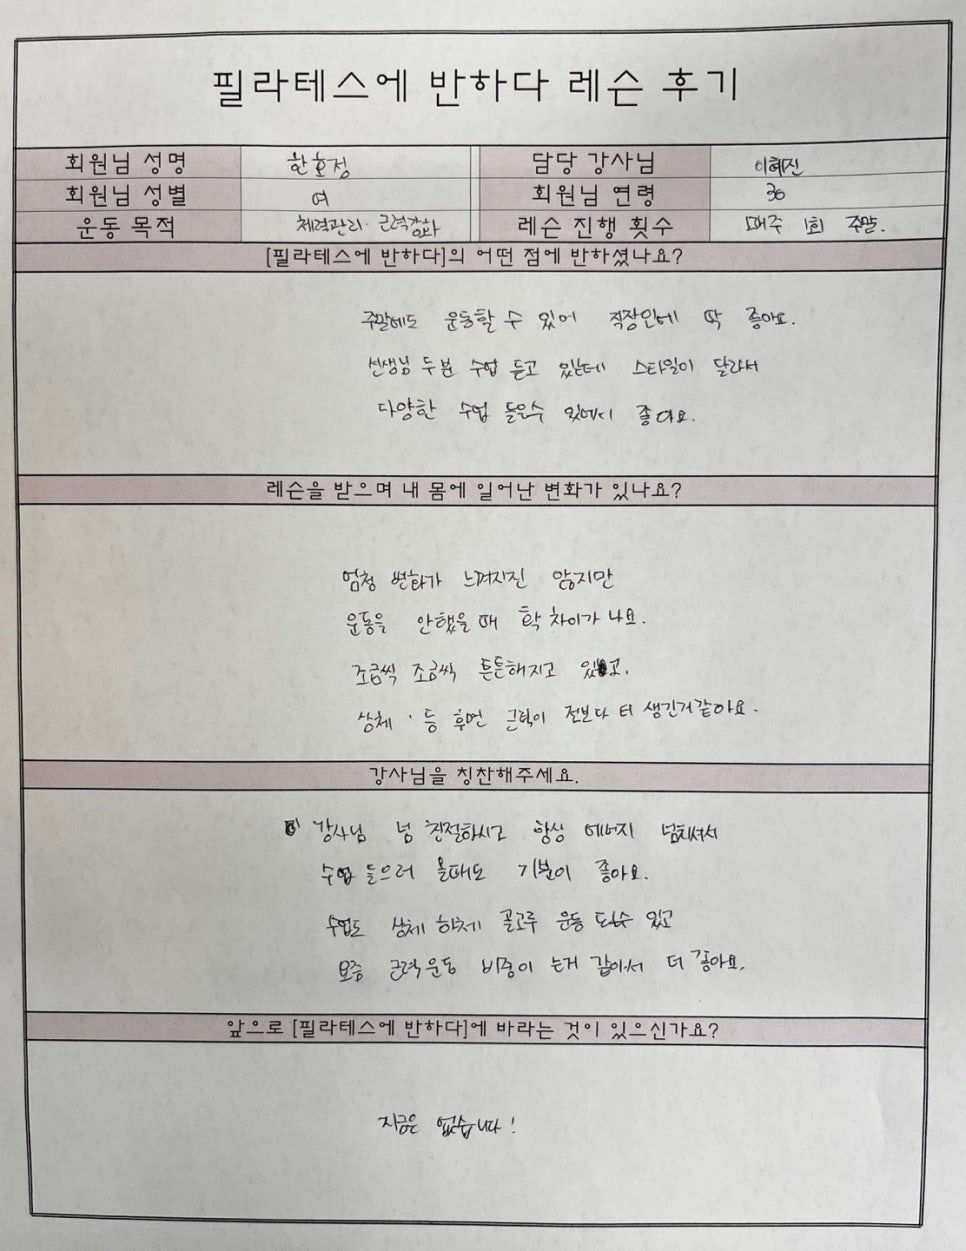 필라테스에 반하다 레슨 후기
회원님 성명 한효정 담당 강사님 이혜진
회원님 성별 여 회원님 연령 30
운동 목적 체력관리· 근력강화 레슨 진행 횟수 매주 1회 주말.
[필라테스에 반하다]의 어떤 점에 반하셨나요?
주말에도 운동할 수 있어 직장인에 딱 좋아요.
선생님 두분 수업 듣고 있는데 스타일이 달라서
다양한 수업 들을수 있어서 좋아요.
레슨을 받으며 내 몸에 일어난 변화가 있나요?
엄청 변화가 느껴지진 않지만
운동을 안했을 때 확 차이가 나요.
조금씩 조금씩 튼튼해지고 있고.
상체 · 등 후면 근력이 전보다 더 생긴거같아요.
강사님을 칭찬해주세요.
강사님 넘 친절하시고 항상 에너지 넘치셔서
수업 들으러 올때도 기분이 좋아요.
수업도 상체 하체 골고루 운동 할수 있고
요즘 근력운동 비중이 는거 같아서 더 좋아요.
앞으로 [필라테스에 반하다]에 바라는 것이 있으신가요?
지금은 없습니다!